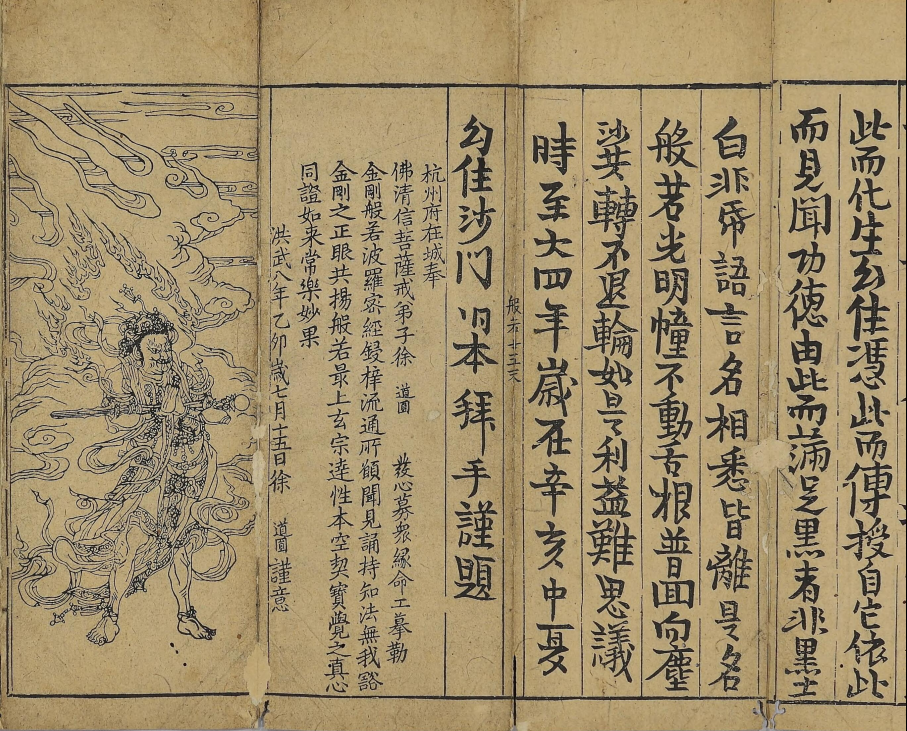 此而化生幻住憑此而傳授自它依此
而見聞功德由此而滿足黑者非墨
白非帋語言名相悉皆離是名
般若光明幢不動舌根普回向塵
沙共轉不退輪如是利益難思議
時至大四年歲在辛亥中夏
般若廿三天
幻住沙門 明本 拜手謹題
杭州府在城奉
佛清信菩薩戒弟子徐 道圓 發心募衆緣命工摹勒
金剛般若波羅密經鋟梓流通所願聞見誦持知法無我豁
金剛之正眼共揚般若最上玄宗達性本空契寶覺之真心
同證如来常樂妙果
洪武八年乙卯歲七月十五日徐 道圓 謹意